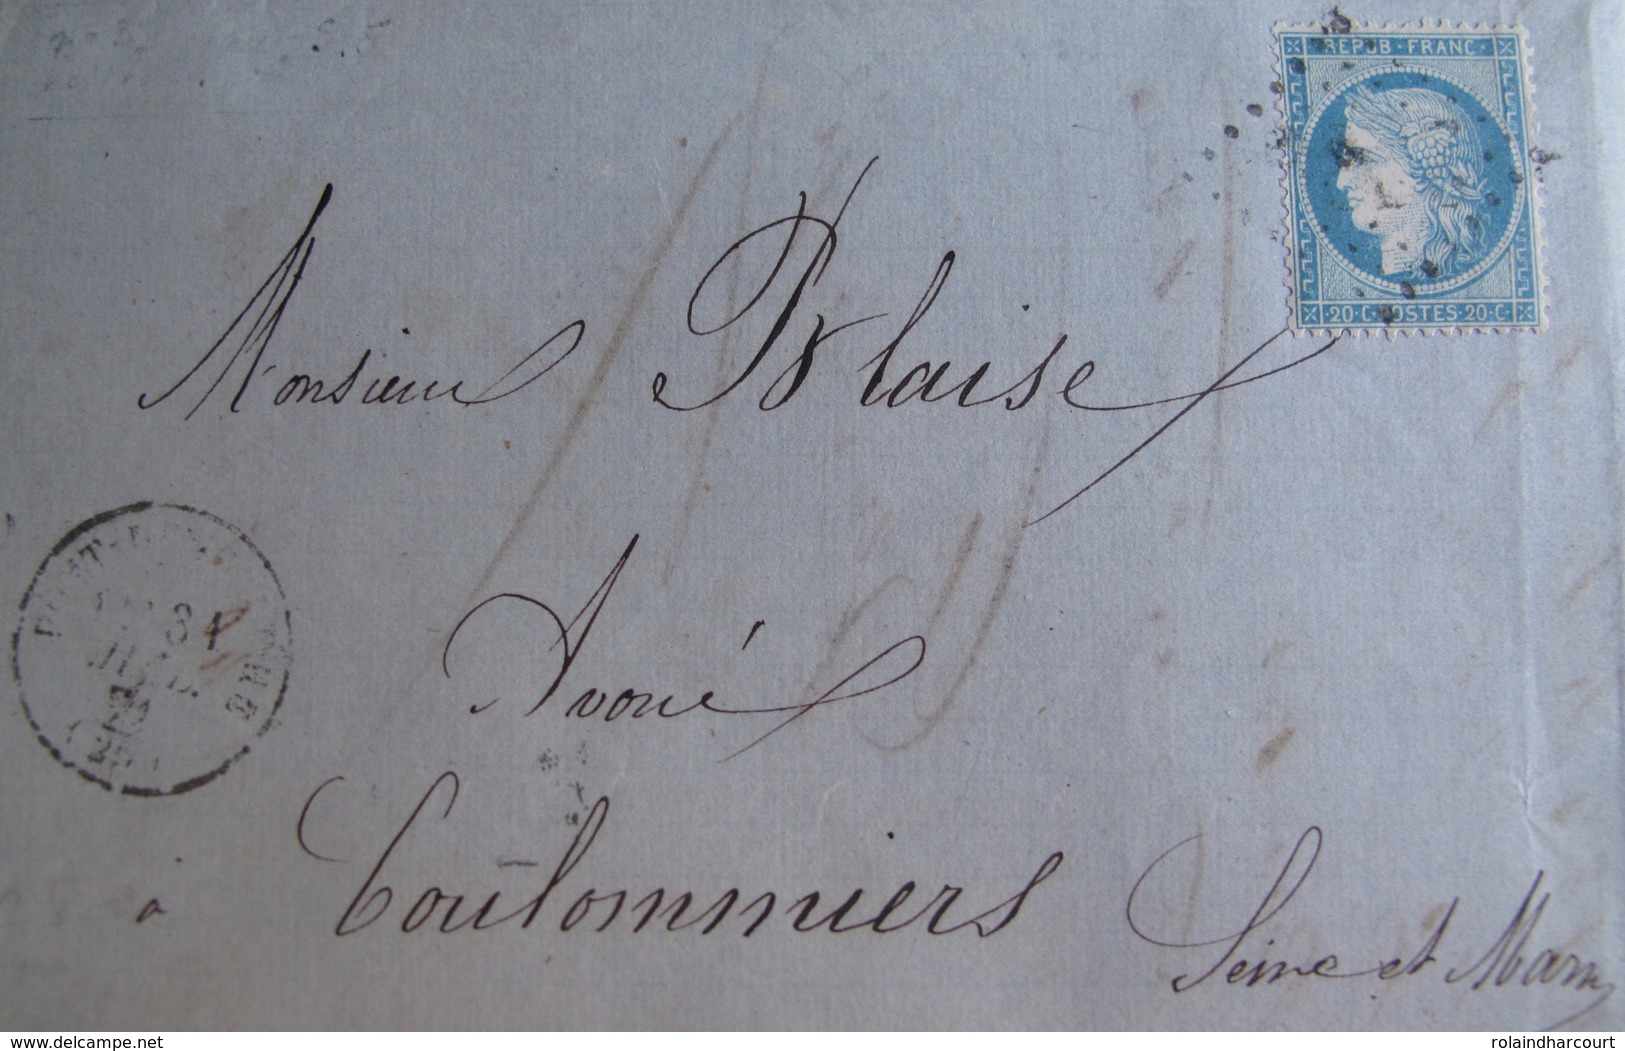 REPUB · FRANC
20 · C · POSTES · 20 · C
Monsieur Blaise
31
Avoué
à Coulommiers
Seine et Marne
www.delcampe.net
rolaindharcourt